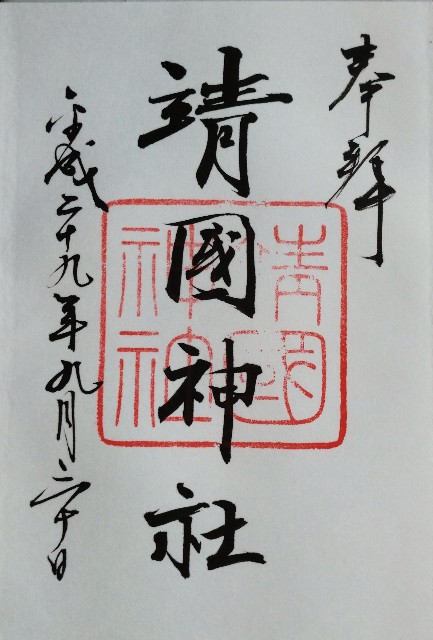 奉拜
靖國神社
平成二十九年九月三十日
靖國
神社